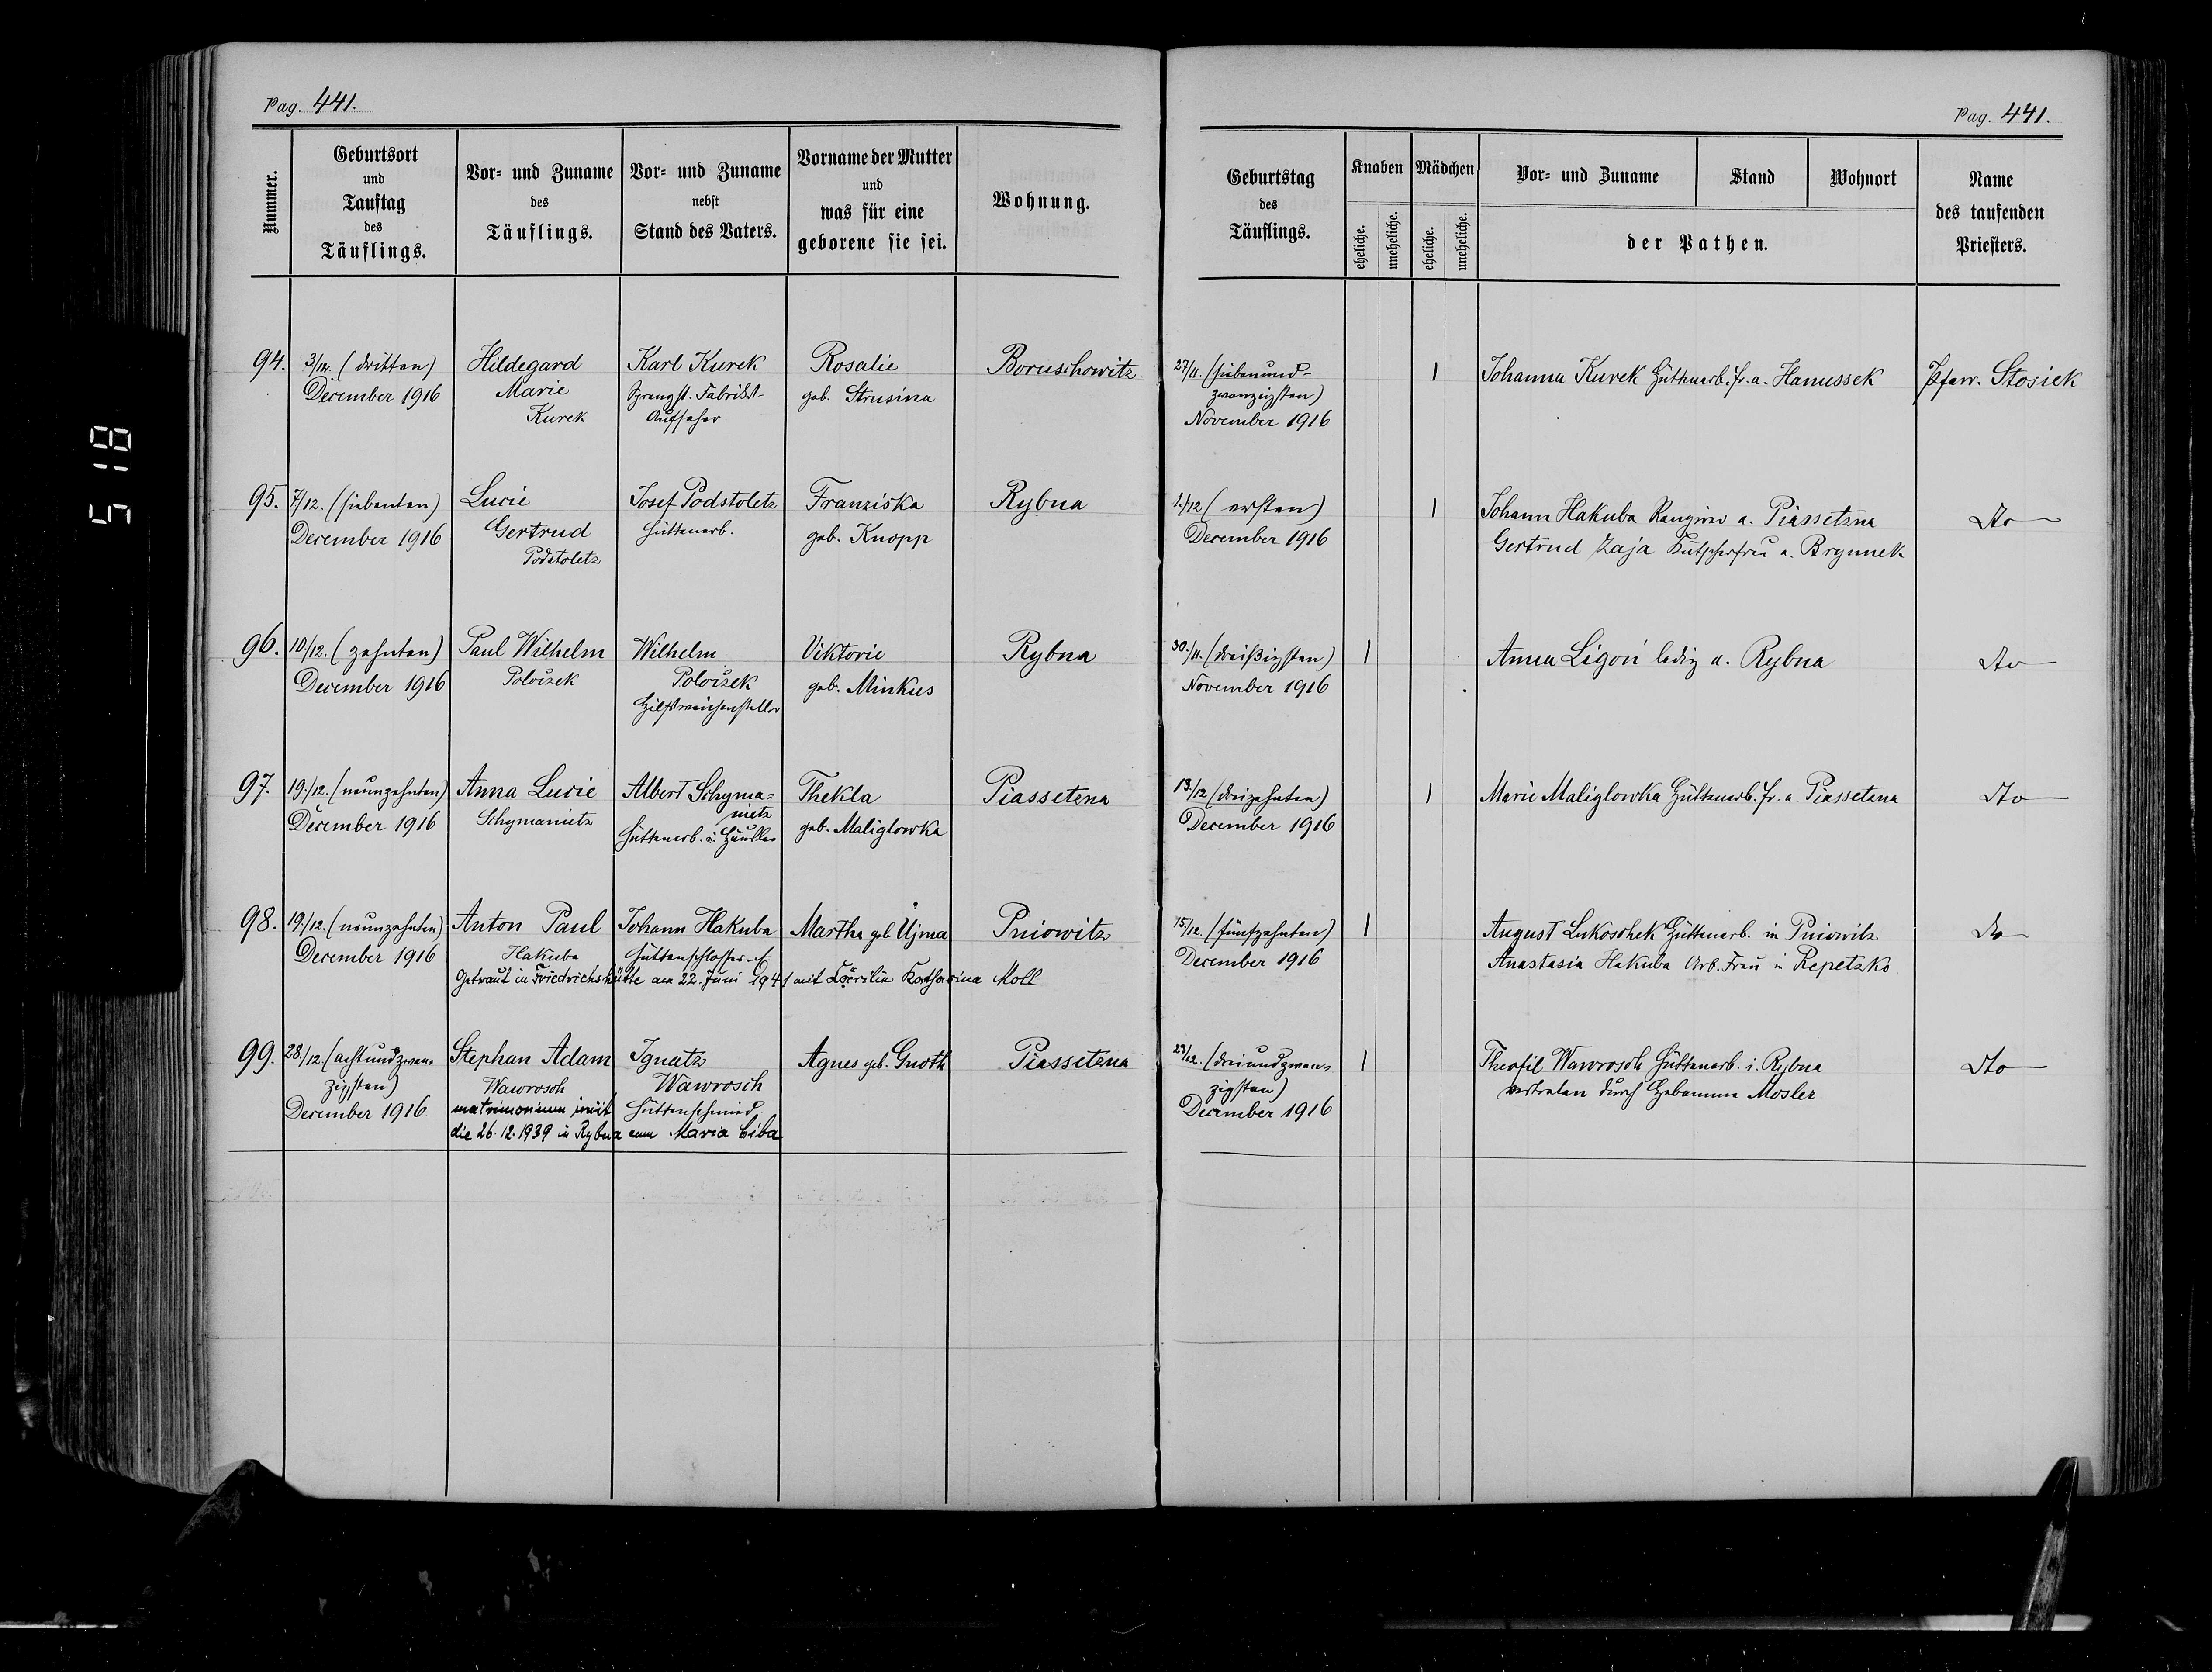 Pag. 441.
Nummer.
Geburtsort
und
Tauftag
des
Täuflings.
Vor- und Zuname
des
Täuflings.
Vor- und Zuname
nebst
Stand des Vaters.
Vorname der Mutter
und
was für eine
geborene sie sei.
Wohnung.
94.
3/12. (dritten)
December 1916
Hildegard
Marie
Kurek
Karl Kurek
Sprengst. Fabrikt-
Aufseher
Rosalie
geb. Strusina
Boruschowitz
95.
7/12. (siebenten)
December 1916
Lucie
Gertrud
Podstoletz
Josef Podstoletz
Hüttenarb.
Franziska
geb. Knopp
Rybna
96.
10./12. (zehnten)
December 1916
Paul Wilhelm
Poloczek
Wilhelm
Poloczek
Hilfsweichensteller
Viktorie
geb. Minkus
Rybna
97.
19./12. (neunzehnten)
December 1916
Anna Lucie
Schymanietz
Albert Schyma=
nietz
Hüttenarb. u. Häusler
Thekla
geb. Maliglowka
Piassetzna
98.
19./12. (neunzehnten)
December 1916
Anton Paul
Hakuba
Johann Hakuba
Hüttenschlosser
Martha geb Ujma
Pniowitz
Getraut in Friedrichshütte am 22. Juni 1941 mit Cäcilia Katharina Moll
99.
28./12. (achtundzwan-
zigsten)
December 1916
Stephan Adam
Wawrosch
Ignatz
Wawrosch
Hüttenschmied
Agnes geb. Gnoth
Piassetzna
matrimonium iniit
die 26.12.1939 in Rybna cum Maria Ciba
Pag. 441.
Geburtstag
des
Täuflings.
Knaben
eheliche.
uneheliche.
Mädchen
eheliche.
uneheliche.
Vor- und Zuname
Stand
Wohnort
der Pathen.
Name
des taufenden
Priesters.
27/11. (siebenund-
zwanzigsten)
November 1916
1
Johanna Kurek Hüttenarb. fr. a. Hanussek
Pfarr. Stosiek
1./12 (ersten)
December 1916
1
Johann Hakuba Rangirer a. Piassetzna
Gertrud Zaja Kutscherfrau a. Brynnek
dto
30./11. (dreißigsten)
November 1916
1
Anna Ligon ledig a. Rybna
dto
13/12 (dreizehnten)
December 1916
1
Marie Maliglowka Hüttenarb. fr. a. Piassetzna
dto
15./12. (fünfzehnten)
December 1916
1
August Lukoschek Hüttenarb. in Pniowitz
Anastasia Hakuba Arb. Frau in Repetzko
do
23/12. (dreiundzwan-
zigsten)
December 1916
1
Theofil Wawrosch Hüttenarb. i. Rybna
vertreten durch Hebamme Mosler
dto
518